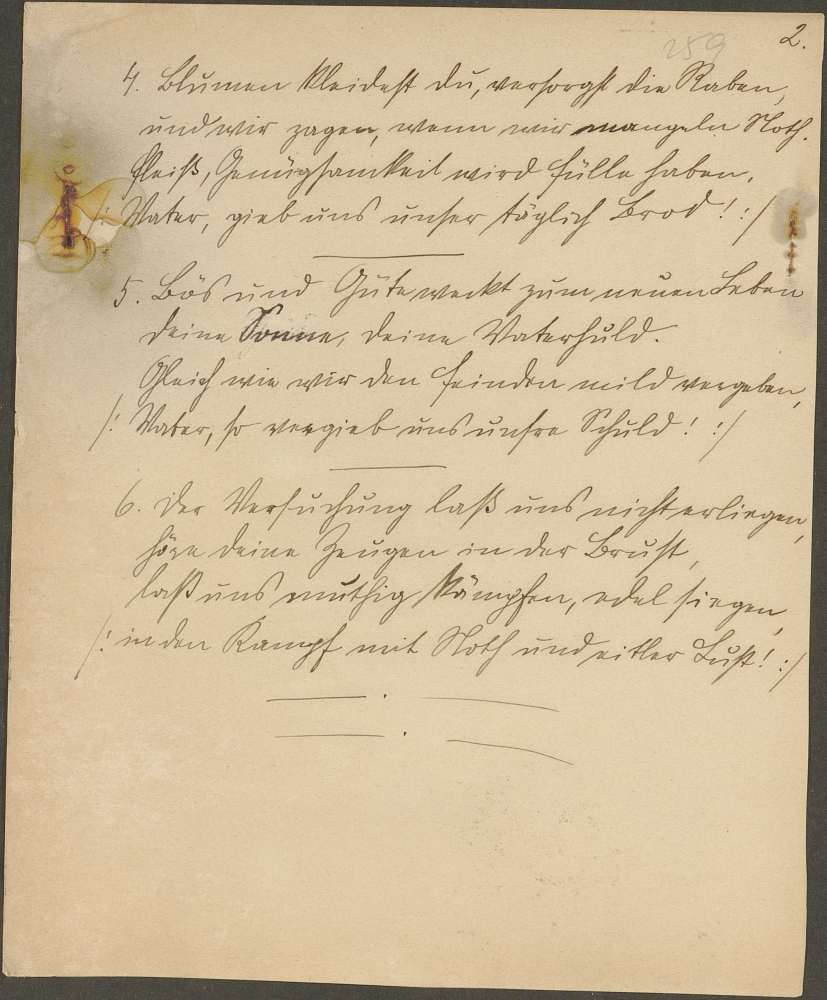 259
2.
4. Blumen kleidest du, versorgst die Raben,
und wir zagen, wenn wir mangeln Noth.
Fleiß, Genügsamkeit wird Fülle haben.
/: Vater, gieb uns unser täglich Brod! :/
5. Bös und Gute weckt zum neuen Leben
deine Sonne, deine Vaterhuld.
Gleich wie wir den Feinden mild vergeben,
/: Vater, so vergieb uns unsre Schuld! :/
6. Der Versuchung laß uns nicht erliegen,
höre deine Zeugen in der Brust,
laß uns muthig kämpfen, edel siegen,
/: in den Kampf mit Noth und eitler Lust! :/